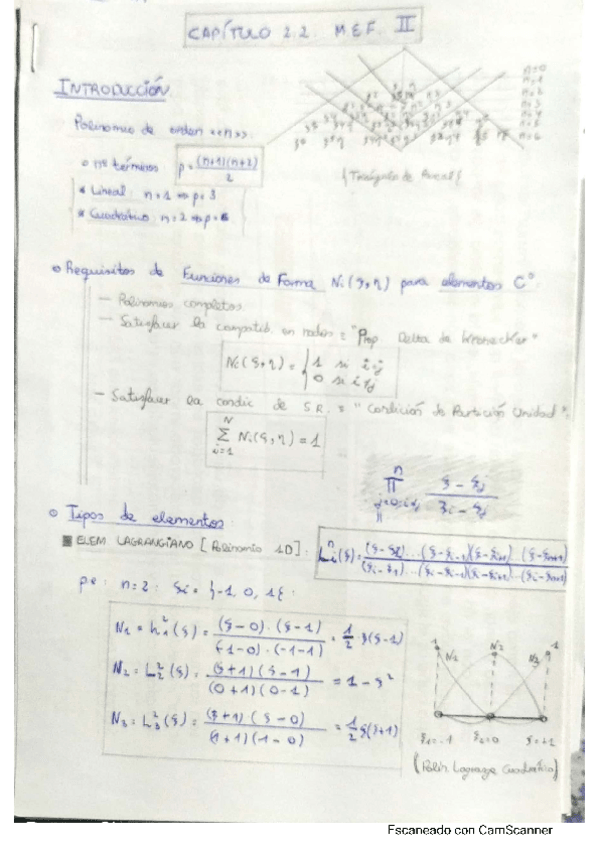 CAPÍTULO 2.2. MEF. II
INTRODUCCIÓN
Polinomio de orden <<n>>.
nº términos p = (n+1)(n+2)/2
* Lineal: n=1 ⇒ p=3
* Cuadrático: n=2 ⇒ p=6
n=0
n=1
n=2
n=3
n=4
n=5
n=6
{Triángulo de Pascal}
o Requisitos de Funciones de Forma Ni(ξ,η) para elementos C°
— Polinomios completos
— Satisfacer la compatib. en nodos = "Prop Delta de Kronecker"
Ni(ξ,η) = { 1 si i=j
0 si i≠j
— Satisfacer la condic de S.R. = "Condición de Partición Unidad".
N Σ i=1 Ni(ξ,η) = 1
n Π j=0; i≠j (ξ-ξj)/(ξi-ξj)
o Tipos de elementos
■ ELEM. LAGRANGIANO [Polinomio 1D]:
pe: n=2: ξi = {-1, 0, 1}:
N1 = L₁²(ξ) = (ξ-0)·(ξ-1)/(-1-0)·(-1-1) = 1/2 ξ(ξ-1)
N2 = L₂²(ξ) = (ξ+1)(ξ-1)/(0+1)(0-1) = 1-ξ²
N3 = L₃²(ξ) = (ξ+1)(ξ-0)/(1+1)(1-0) = 1/2 ξ(ξ+1)
1 N1 N2 N3 1
ξ1=-1 ξ2=0 ξ=+1
(Polin Lagrange Cuadrático)
Escaneado con CamScanner